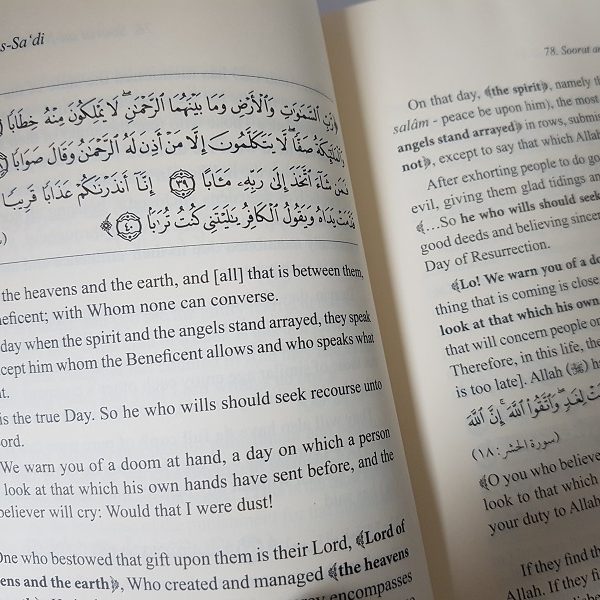 s-Sa‘di
﴿رَّبِّ ٱلسَّمَٰوَٰتِ وَٱلْأَرْضِ وَمَا بَيْنَهُمَا ٱلرَّحْمَٰنِ ۖ لَا يَمْلِكُونَ مِنْهُ خِطَابًا
وَٱلْمَلَٰٓئِكَةُ صَفًّا ۖ لَّا يَتَكَلَّمُونَ إِلَّا مَنْ أَذِنَ لَهُ ٱلرَّحْمَٰنُ وَقَالَ صَوَابًا
فَمَن شَآءَ ٱتَّخَذَ إِلَىٰ رَبِّهِۦ مَـَٔابًا ٣٩ إِنَّآ أَنذَرْنَٰكُمْ عَذَابًا قَرِيبًا
قَدَّمَتْ يَدَاهُ وَيَقُولُ ٱلْكَافِرُ يَٰلَيْتَنِى كُنتُ تُرَٰبًۢا ٤٠﴾
the heavens and the earth, and [all] that is between them,
eficent; with Whom none can converse.
day when the spirit and the angels stand arrayed, they speak
cept him whom the Beneficent allows and who speaks what
t.
is the true Day. So he who wills should seek recourse unto
ord.
We warn you of a doom at hand, a day on which a person
look at that which his own hands have sent before, and the
believer will cry: Would that I were dust!
One who bestowed that gift upon them is their Lord, ﴾Lord of
ens and the earth﴿, Who created and managed ﴾the heavens
encompasses
78. Soorat an
On that day, ﴾the spirit﴿, namely th
salâm - peace be upon him), the most
angels stand arrayed﴿ in rows, submis
not﴿, except to say that which Allah
After exhorting people to do go
evil, giving them glad tidings and
﴾…So he who wills should seek
good deeds and believing sincer
Day of Resurrection.
﴾Lo! We warn you of a doo
thing that is coming is close,
look at that which his own
that will concern people or
Therefore, in this life, the
is too late]. Allah (ﷻ) ha
لِغَدٍ ۖ وَٱتَّقُوا۟ ٱللَّهَ ۚ إِنَّ ٱللَّهَ
(سورة الحشر: ١٨)
﴾O you who believe
look to that which
your duty to Allah
If they find th
Allah. If they